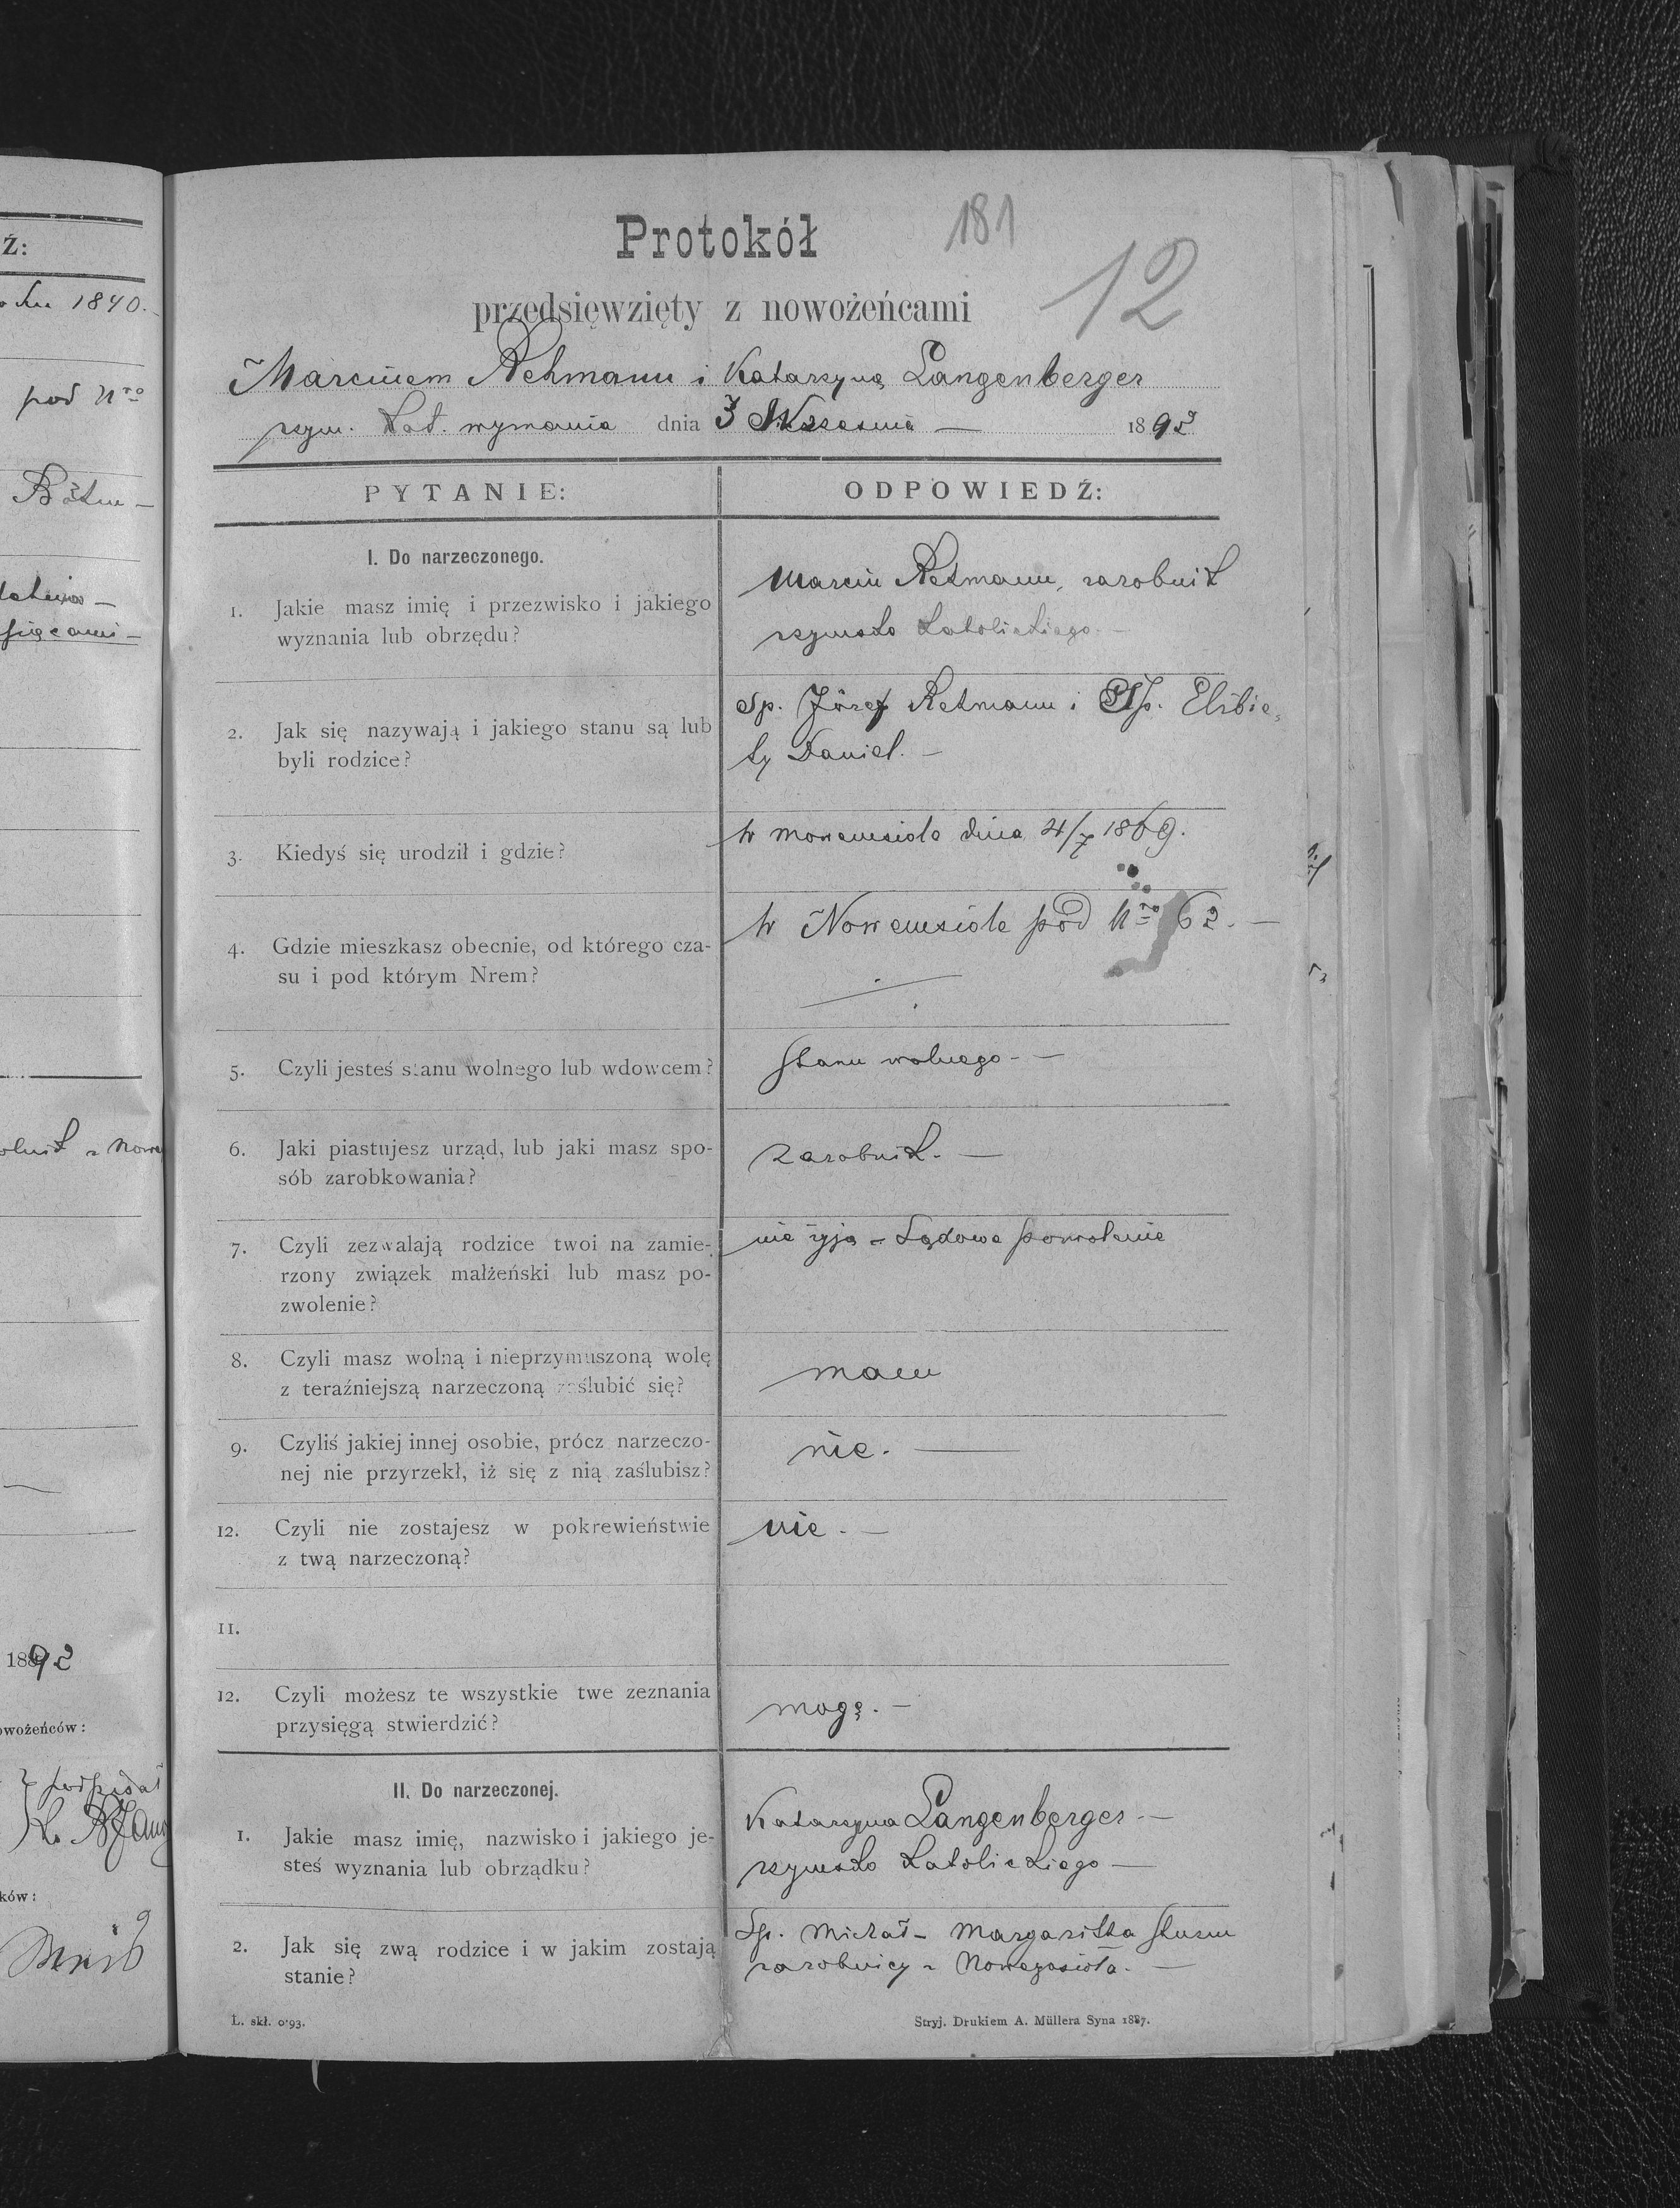 Ź:
1840.
pod Nro
1892
owożeńców:
ków:
181
Protokół
12
przedsięwzięty z nowożeńcami
Marcinem Rehmann i Katarzyną Langenberger
rzym. kat. wyznania dnia 3 Września — 1892
PYTANIE: ODPOWIEDŹ:
I. Do narzeczonego.
1. Jakie masz imię i przezwisko i jakiego
wyznania lub obrzędu?
Marcin Rehmann, zarobnik
rzymsko katolickiego. —
2. Jak się nazywają i jakiego stanu są lub
byli rodzice?
Śp. Józef Rehmann i Śp. Elżbie-
ty Daniel. —
3. Kiedyś się urodził i gdzie?
w nowemsiole dnia 4/7 1869.
4. Gdzie mieszkasz obecnie, od którego cza-
su i pod którym Nrem?
w Nowemsiole pod Nro 62. —
5. Czyli jesteś stanu wolnego lub wdowcem?
stanu wolnego. —
6. Jaki piastujesz urząd, lub jaki masz spo-
sób zarobkowania?
zarobnik. —
7. Czyli zezwalają rodzice twoi na zamie-
rzony związek małżeński lub masz po-
zwolenie?
nie żyją - Sądowe pozwolenie
8. Czyli masz wolną i nieprzymuszoną wolę
z teraźniejszą narzeczoną zaślubić się?
mam
9. Czyliś jakiej innej osobie, prócz narzeczo-
nej nie przyrzekł, iż się z nią zaślubisz?
nie. —
12. Czyli nie zostajesz w pokrewieństwie
z twą narzeczoną?
nie. —
11.
12. Czyli możesz te wszystkie twe zeznania
przysięgą stwierdzić?
mogę. —
II. Do narzeczonej.
1. Jakie masz imię, nazwisko i jakiego je-
steś wyznania lub obrządku?
Katarzyna Langenberger —
rzymsko katolickiego —
2. Jak się zwą rodzice i w jakim zostają
stanie?
Śp. Michał - Margaritta
zarobnicy z Nowegosioła. —
L. skł. 0·93.
Stryj. Drukiem A. Müllera Syna 1887.